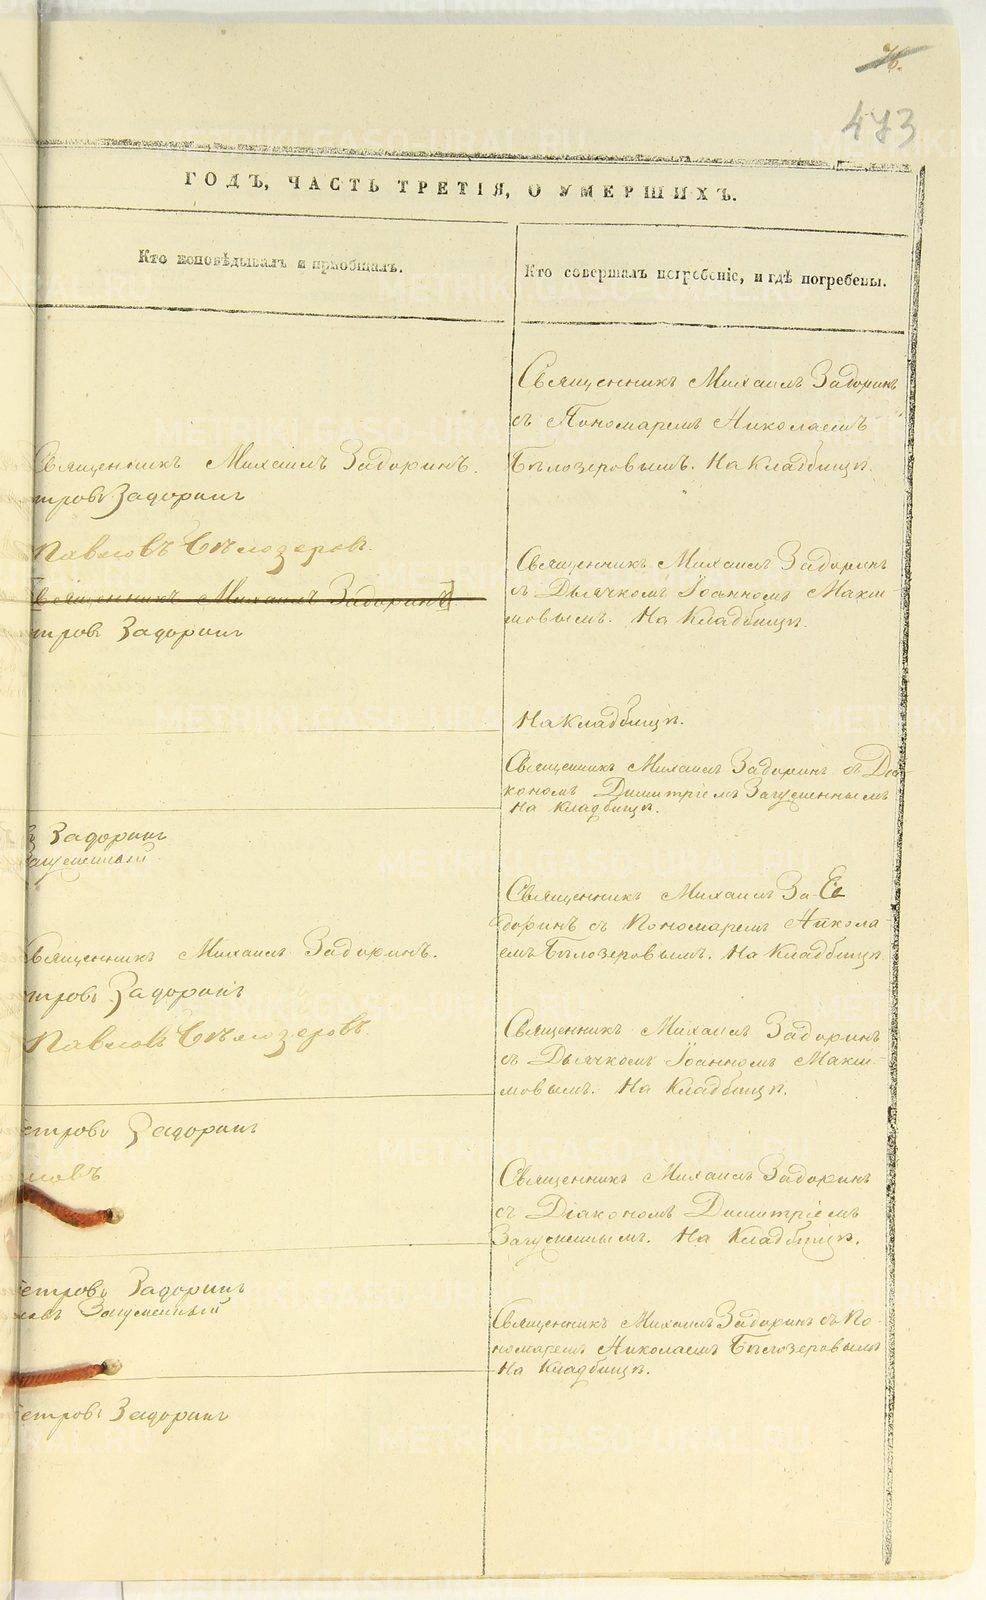 76.
473
ГОДЪ, ЧАСТЬ ТРЕТІЯ, О УМЕРШИХЪ.
Кто исповѣдывалъ и пріобщалъ.
Кто совершалъ погребеніе, и гдѣ погребены.
Священникъ Михаилъ Задоринъ.
тровъ Задоринъ
Павловъ Бѣлозеровъ.
Священникъ Михаилъ Задоринъ
тровъ Задоринъ
Задоринъ
Загуменный
Священникъ Михаилъ Задоринъ.
тровъ Задоринъ
Павловъ Бѣлозеровъ
етровъ Задоринъ
мовъ
етровъ Задоринъ
Загуменный
етровъ Задоринъ
Священникъ Михаилъ Задоринъ
съ Пономаремъ Николаемъ
Бѣлозеровымъ. На Кладбищѣ.
Священникъ Михаилъ Задоринъ
съ Дьячкомъ Іоанномъ Макси-
мовымъ. На Кладбищѣ.
На Кладбищѣ.
Священникъ Михаилъ Задоринъ съ Діа-
кономъ Димитріемъ Загуменнымъ
На Кладбищѣ.
Священникъ Михаилъ За-
доринъ съ Пономаремъ Никола-
емъ Бѣлозеровымъ. На Кладбищѣ
Священникъ Михаилъ Задоринъ
съ Дьячкомъ Іоанномъ Макси-
мовымъ. На Кладбищѣ.
Священникъ Михаилъ Задоринъ
съ Діакономъ Димитріемъ
Загуменнымъ. На Кладбищѣ.
Священникъ Михаилъ Задоринъ съ По-
номаремъ Николаемъ Бѣлозеровымъ
На Кладбищѣ.
METRIKI.GASO-URAL.RU